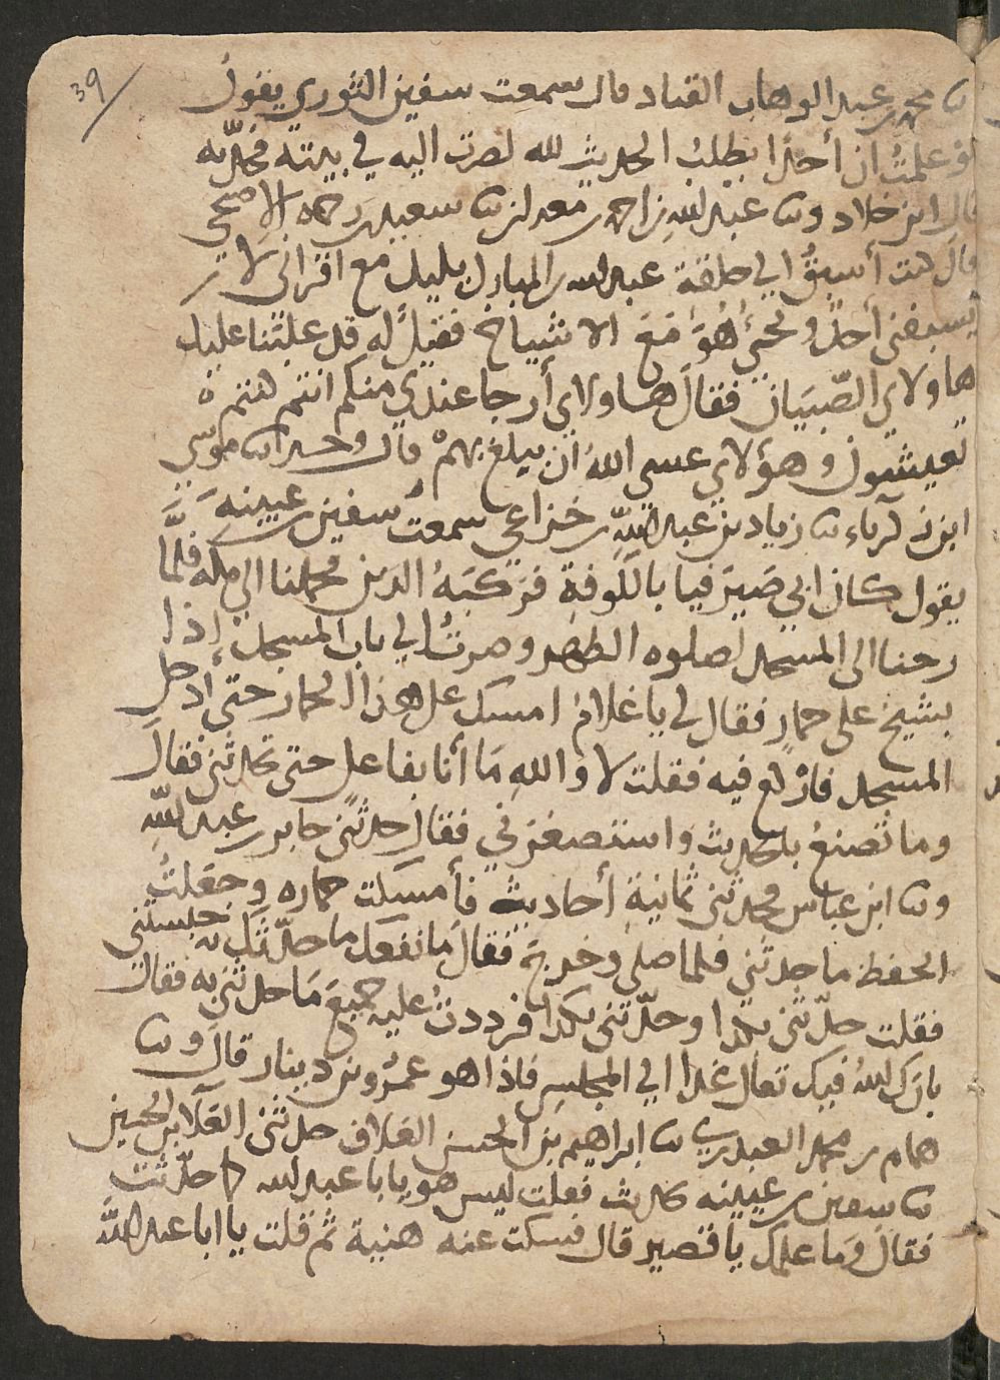 39
ثنا محمد بن عبد الوهاب القناد قال سمعت سفين الثوري يقول
لو علمت ان أحدا يطلب الحديث لله لصرت اليه في بيته فحدثه
قال ابن خلاد وثنا عبد الله بن احمد بن معدان ثنا سعيد بن رحمه الاصبحي
قال كنت أسبق الي حلقة عبد الله بن المبارك بليل مع اقراني لا
يسبقني أحد ويجيء هو مع الاشياخ فقيل له قد غلبنا عليك
هاولاي الصبيان فقال هاولاي أرجا عندي منكم انتم كنتم
تعيشون وهؤلاي عسي الله ان يبلغ بهم قال وحدثنا موسي
ابن زكرياء ثنا زياد بن عبد الله بن خزاعي سمعت سفين بن عيينه
يقول كان ابي صيرفيا بالكوفة فركبه الدين فحملنا الي مكه فلما
رحنا الى المسجد لصلوه الظهر وصرت الي باب المسجد إذا
بشيخ على حمار فقال لي يا غلام امسك علي هذا الحمار حتى أدخل
المسجد فاركع فيه فقلت لا والله ما أنا بفاعل حتى تحدثني فقال
وما تصنع بلحديث واستصغرني فقال حدثني جابر بن عبد الله
وثنا ابن عباس فحدثني ثمانية أحاديث فأمسكت حماره وجعلت
الحفظ ما حدثني فلما صلى وخرج فقال ما نفعك ما حدثتك به حبستني
فقلت حدثتني بكذا وحدثتني بكذا فرددت عليه جميع ما حدثني به فقال
بارك الله فيك تعال غدا الي المجلس فاذا هو عمرو بن دينار قال وثنا
همام بن محمد العبدي ثنا إبراهيم بن الحسن العلاف حدثني العلا بن الحسين
ثنا سفين بن عيينه بحديث فقلت ليس هو يا با عبد الله كما حدثت
فقال وما علمك يا قصير قال فسكت عنه هنية ثم قلت يا ابا عبد الله